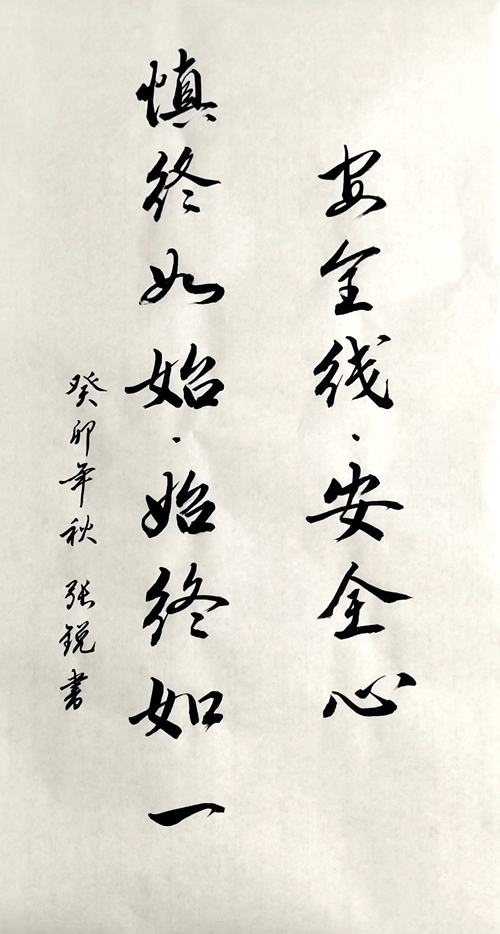 安全线·安全心
慎终如始·始终如一
癸卯年秋 张锐书